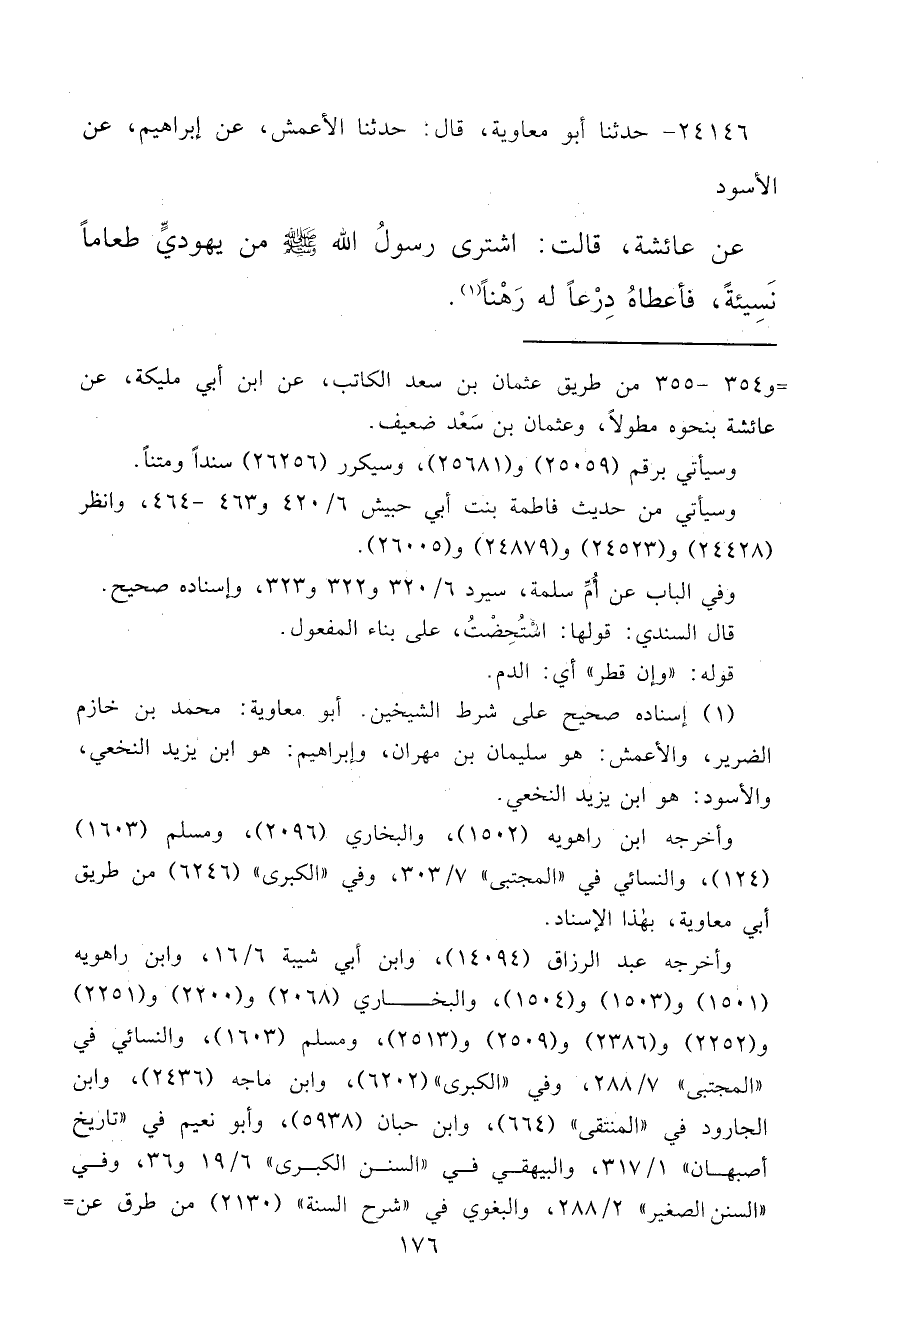 ٢٤١٤٦- حدثنا أبو معاوية، قال: حدثنا الأعمش، عن إبراهيم، عن
الأسود
عن عائشة، قالت: اشترى رسولُ الله ﷺ من يهوديٍّ طعاماً
نَسِيئةً، فأعطاهُ دِرْعاً له رَهْناً(١).
=و٣٥٤ -٣٥٥ من طريق عثمان بن سعد الكاتب، عن ابن أبي مليكة، عن
عائشة بنحوه مطولاً، وعثمان بن سَعْد ضعيف.
وسيأتي برقم (٢٥٠٥٩) و(٢٥٦٨١)، وسيكرر (٢٦٢٥٦) سنداً ومتناً.
وسيأتي من حديث فاطمة بنت أبي حبيش ٤٢٠/٦ و٤٦٣ -٤٦٤، وانظر
(٢٤٤٢٨) و(٢٤٥٢٣) و(٢٤٨٧٩) و(٢٦٠٠٥).
وفي الباب عن أُمِّ سلمة، سيرد ٣٢٠/٦ و٣٢٢ و٣٢٣، وإسناده صحيح.
قال السندي: قولها: اسْتُحِضْتُ، على بناء المفعول.
قوله: «وإن قطر» أي: الدم.
(١) إسناده صحيح على شرط الشيخين. أبو معاوية: محمد بن خازم
الضرير، والأعمش: هو سليمان بن مهران، وإبراهيم: هو ابن يزيد النخعي،
والأسود: هو ابن يزيد النخعي.
وأخرجه ابن راهويه (١٥٠٢)، والبخاري (٢٠٩٦)، ومسلم (١٦٠٣)
(١٢٤)، والنسائي في «المجتبى» ٣٠٣/٧، وفي «الكبرى» (٦٢٤٦) من طريق
أبي معاوية، بهٰذا الإسناد.
وأخرجه عبد الرزاق (١٤٠٩٤)، وابن أبي شيبة ١٦/٦، وابن راهويه
(١٥٠١) و(١٥٠٣) و(١٥٠٤)، والبخـــــاري (٢٠٦٨) و(٢٢٠٠) و(٢٢٥١)
و(٢٢٥٢) و(٢٣٨٦) و(٢٥٠٩) و(٢٥١٣)، ومسلم (١٦٠٣)، والنسائي في
«المجتبى» ٢٨٨/٧، وفي «الكبرى»(٦٢٠٢)، وابن ماجه (٢٤٣٦)، وابن
الجارود في «المنتقى» (٦٦٤)، وابن حبان (٥٩٣٨)، وأبو نعيم في «تاريخ
أصبهـان» ٣١٧/١، والبيهقي فـي «السنـن الكبـرى» ١٩/٦ و٣٦، وفـي
«السنن الصغير» ٢٨٨/٢، والبغوي في «شرح السنة» (٢١٣٠) من طرق عن=
١٧٦